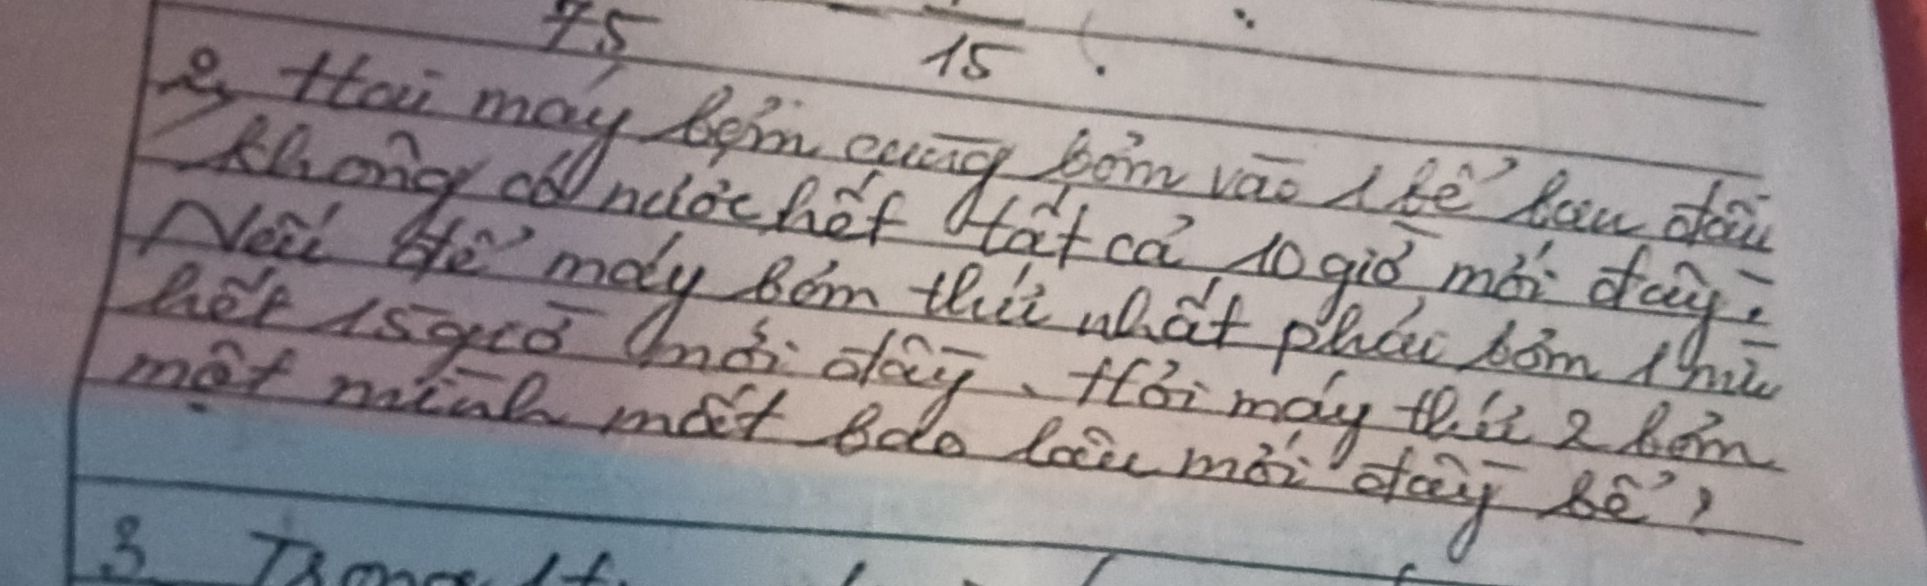 75 15
2, Hai máy bơm cùng bơm vào 1 bể ban đầu
không có nước hết tất cả 10 giờ mới đầy.
Nếu để máy bơm thứ nhất phải bơm 1 mìn
hết 15 giờ mới đầy. Hỏi máy thứ 2 bơm
một mình mất bao lâu mới đầy bể?
3